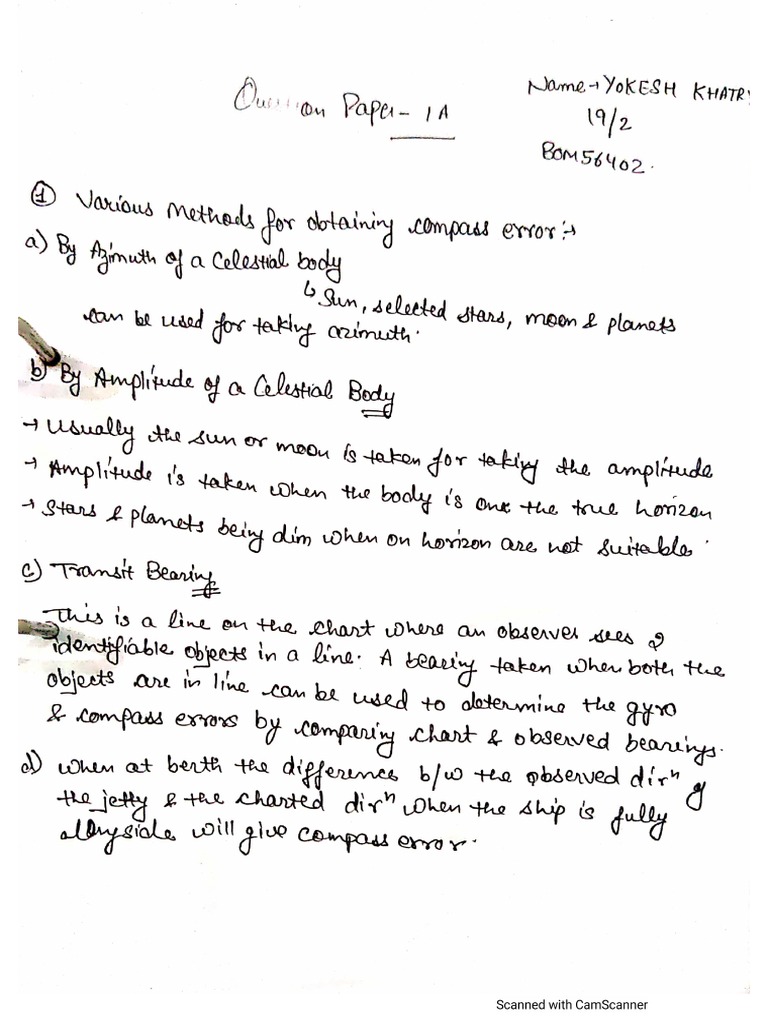 Question Paper - 1A
Name → YOKESH KHATR
19/2
BOM56402.
① Various Methods for obtaining compass error :→
a) By Azimuth of a Celestial body
↳ Sun, selected stars, moon & planets
can be used for taking azimuth.
b) By Amplitude of a Celestial Body
→ Usually the sun or moon is taken for taking the amplitude
→ Amplitude is taken when the body is one the true horizon
→ Stars & planets being dim when on horizon are not suitable.
c) Transit Bearing
This is a line on the chart where an observer sees 2
identifiable objects in a line. A bearing taken when both the
objects are in line can be used to determine the gyro
& compass errors by comparing chart & observed bearings.
d) When at berth the difference b/w the observed dirⁿ of
the jetty & the charted dirⁿ when the ship is fully
alongside will give compass error.
Scanned with CamScanner